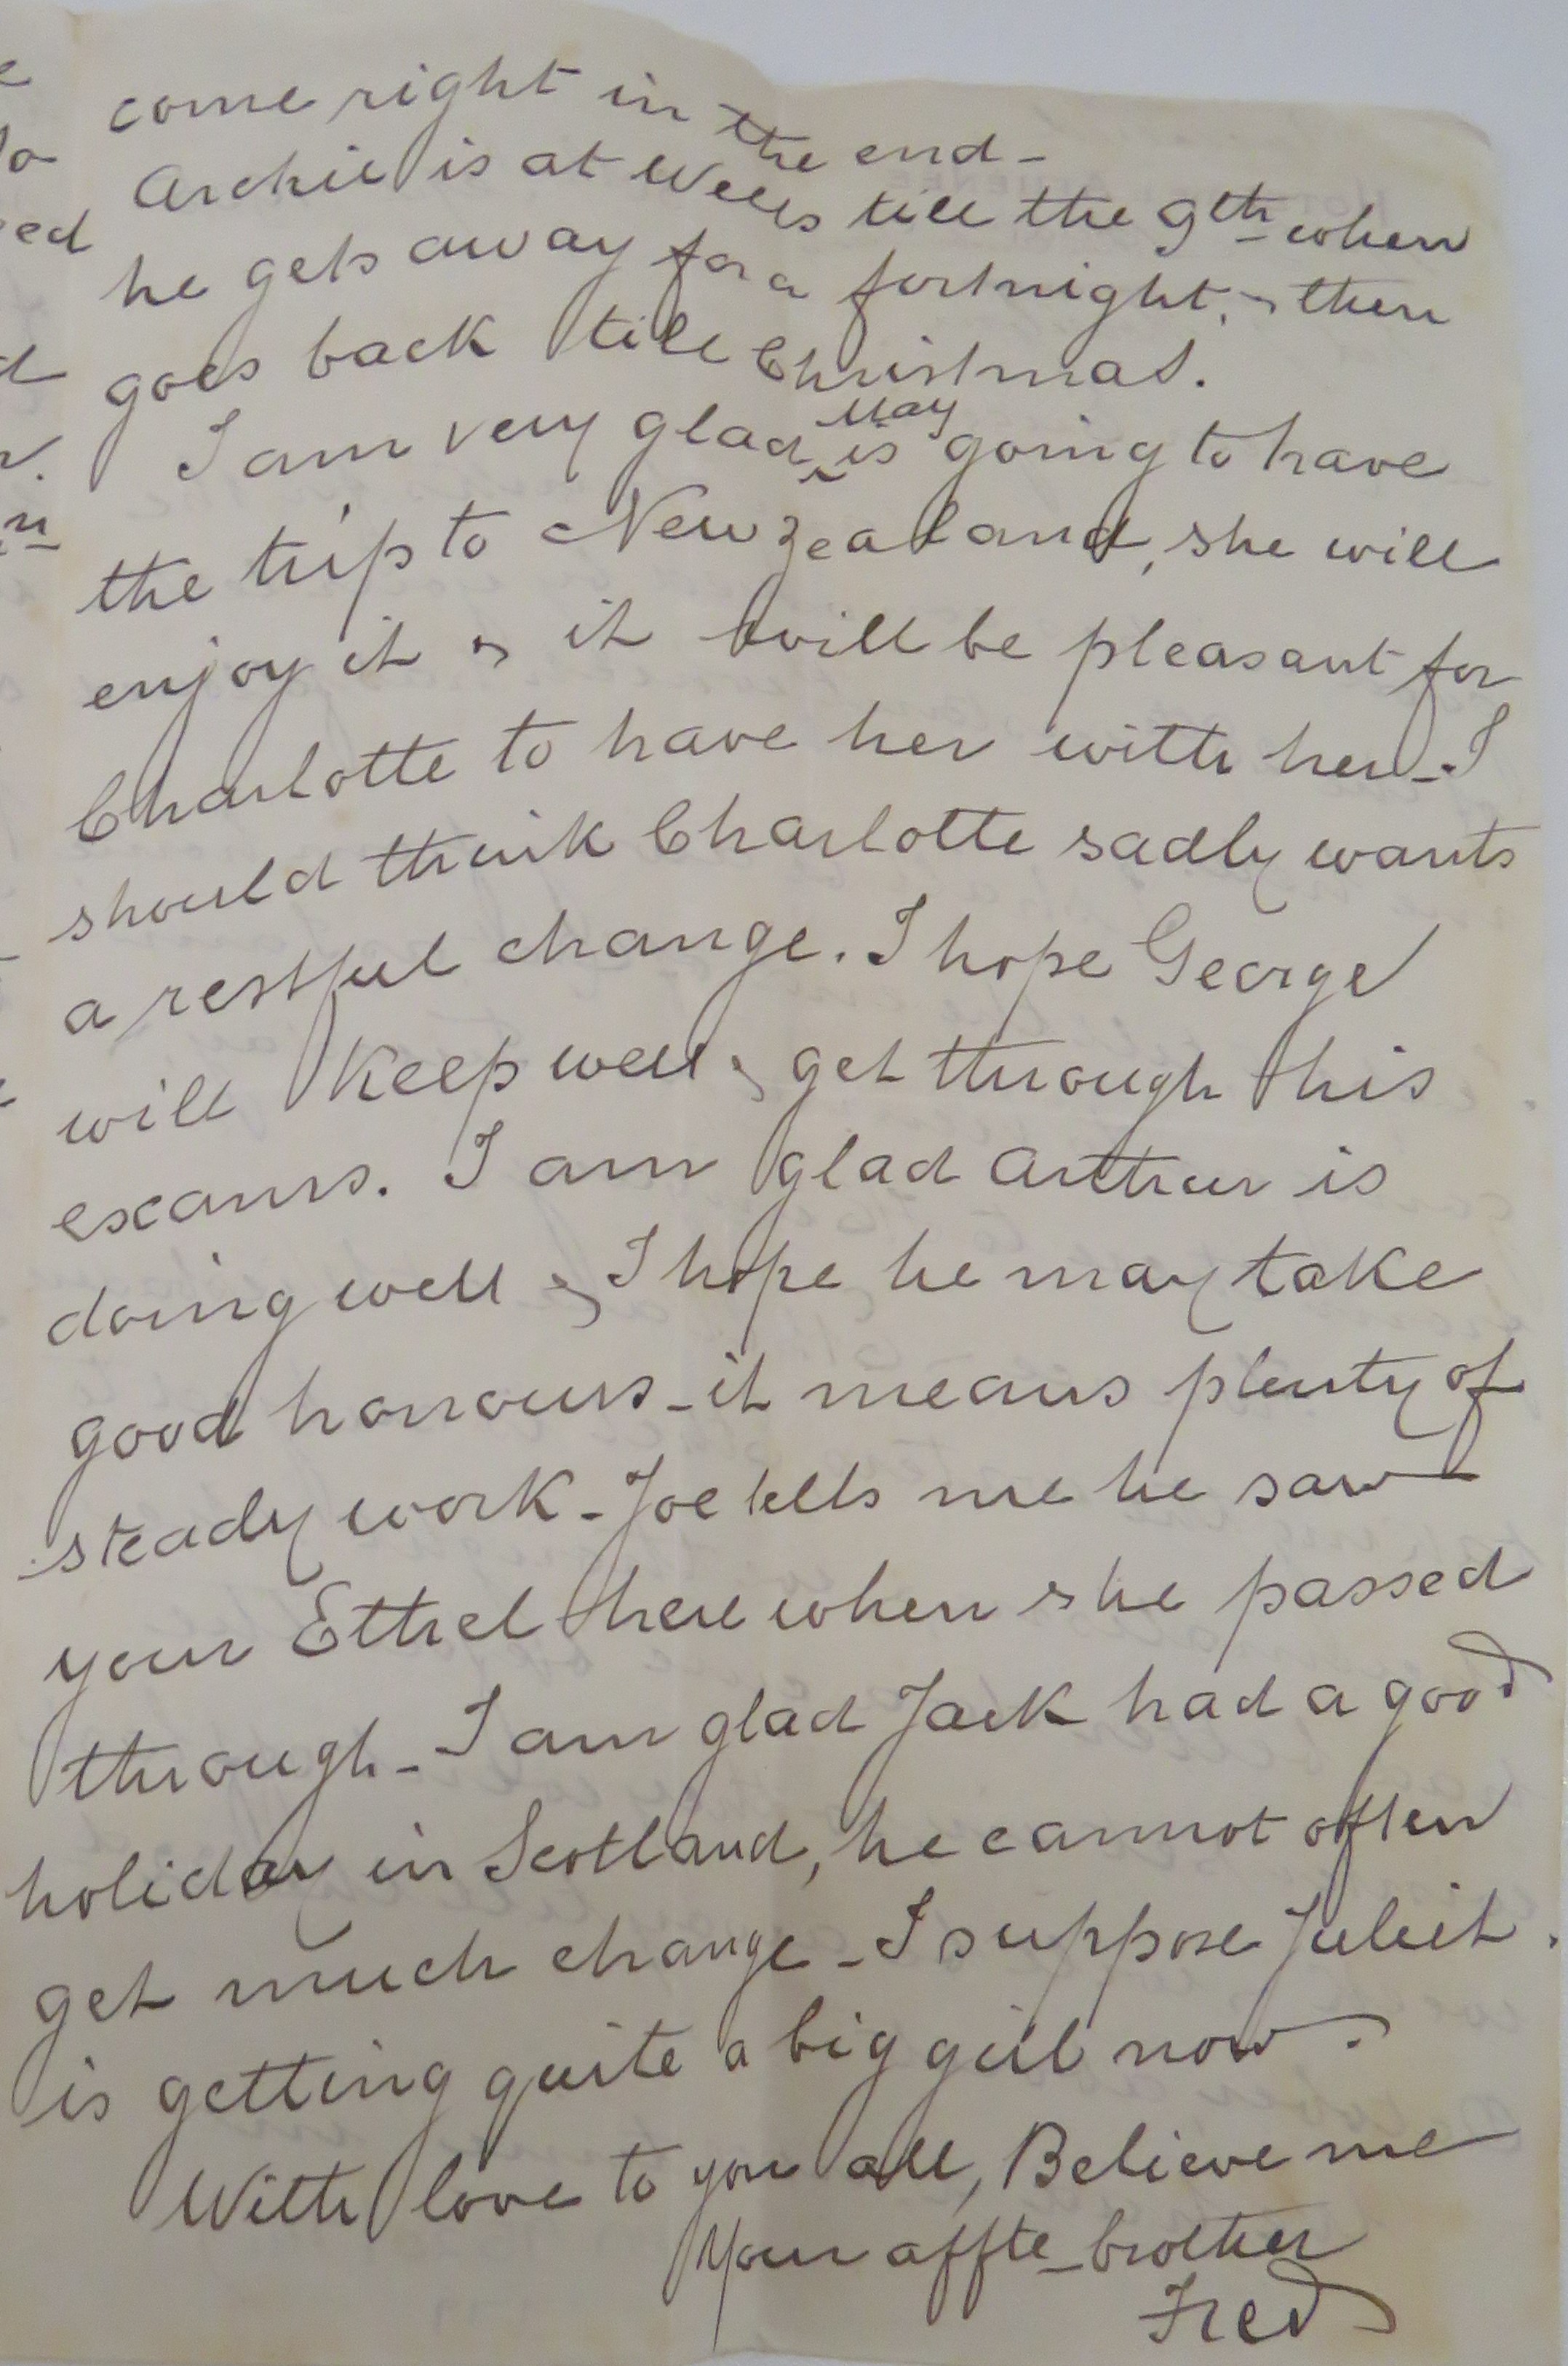 come right in the end -
Archie is at Wells till the 9th when
he gets away for a fortnight, & then
goes back till Christmas.
I am very glad May is going to have
the trip to New Zealand, she will
enjoy it & it will be pleasant for
Charlotte to have her with her -. I
should think Charlotte sadly wants
a restful change. I hope George
will keep well & get through his
exams. I am glad Arthur is
doing well & I hope he may take
good honours - it means plenty of
steady work - Joe tells me he saw
your Ethel here when she passed
through - I am glad Jack had a good
holiday in Scotland, he cannot often
get much change - I suppose Juliet
is getting quite a big girl now.
With love to you all, Believe me
Your affte - brother
Fred